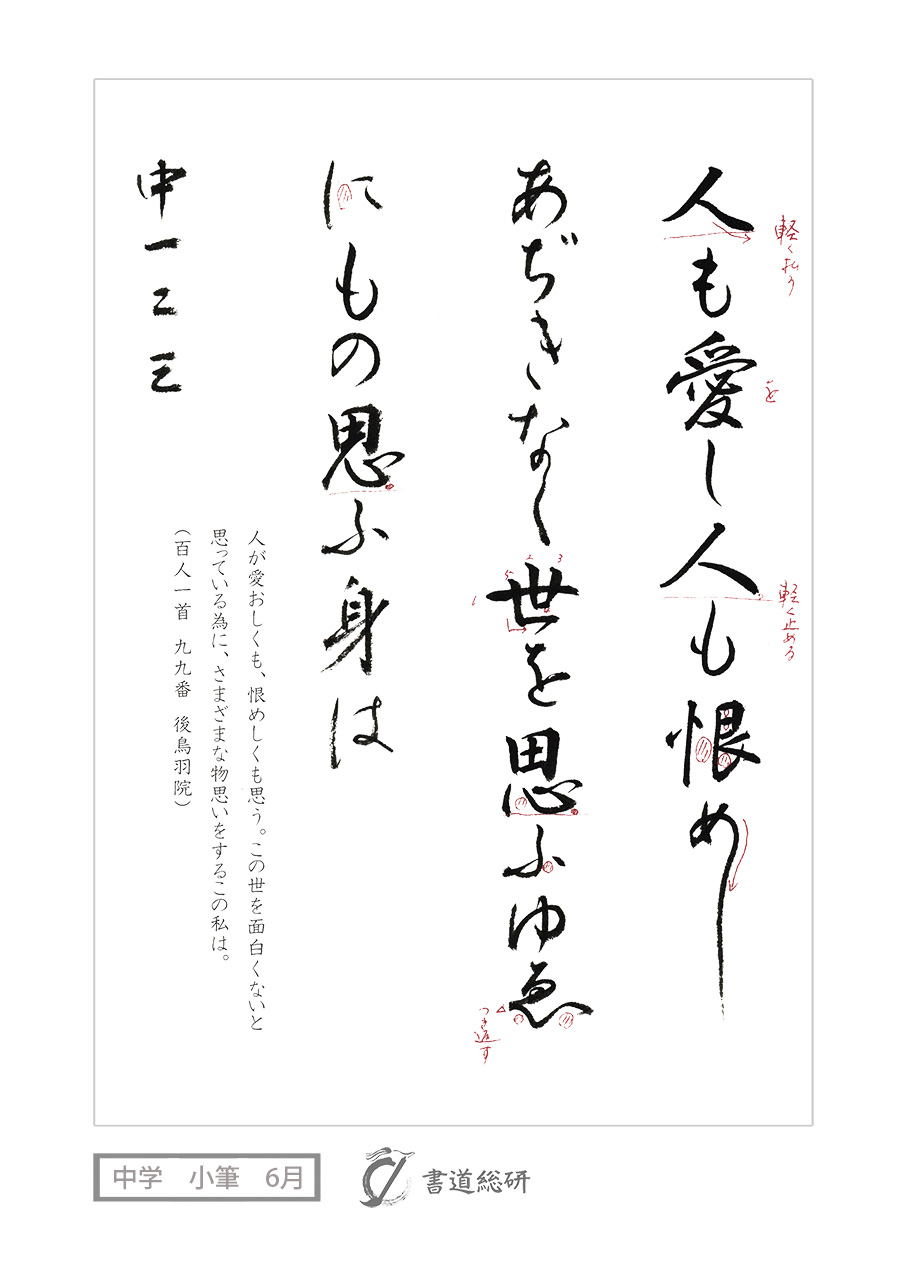 人も愛し人も恨めし
あぢきなく世を思ふゆゑ
にもの思ふ身は
中一二三
軽く払う
を
軽く止める
つき返す
人が愛おしくも、恨めしくも思う。この世を面白くないと
思っている為に、さまざまな物思いをするこの私は。
(百人一首 九九番 後鳥羽院)
中学 小筆 6月
書道総研